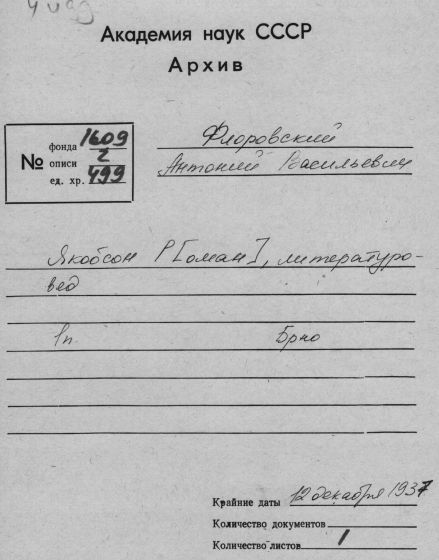 Академия наук СССР
Архив
№
фонда 1609
описи 2
ед. хр. 499
Флоровский
Антоний Васильевич
Якобсон Р[оман], литературо-
вед
1п. Брно
Крайние даты 12 декабря 1937
Количество документов
Количество листов 1